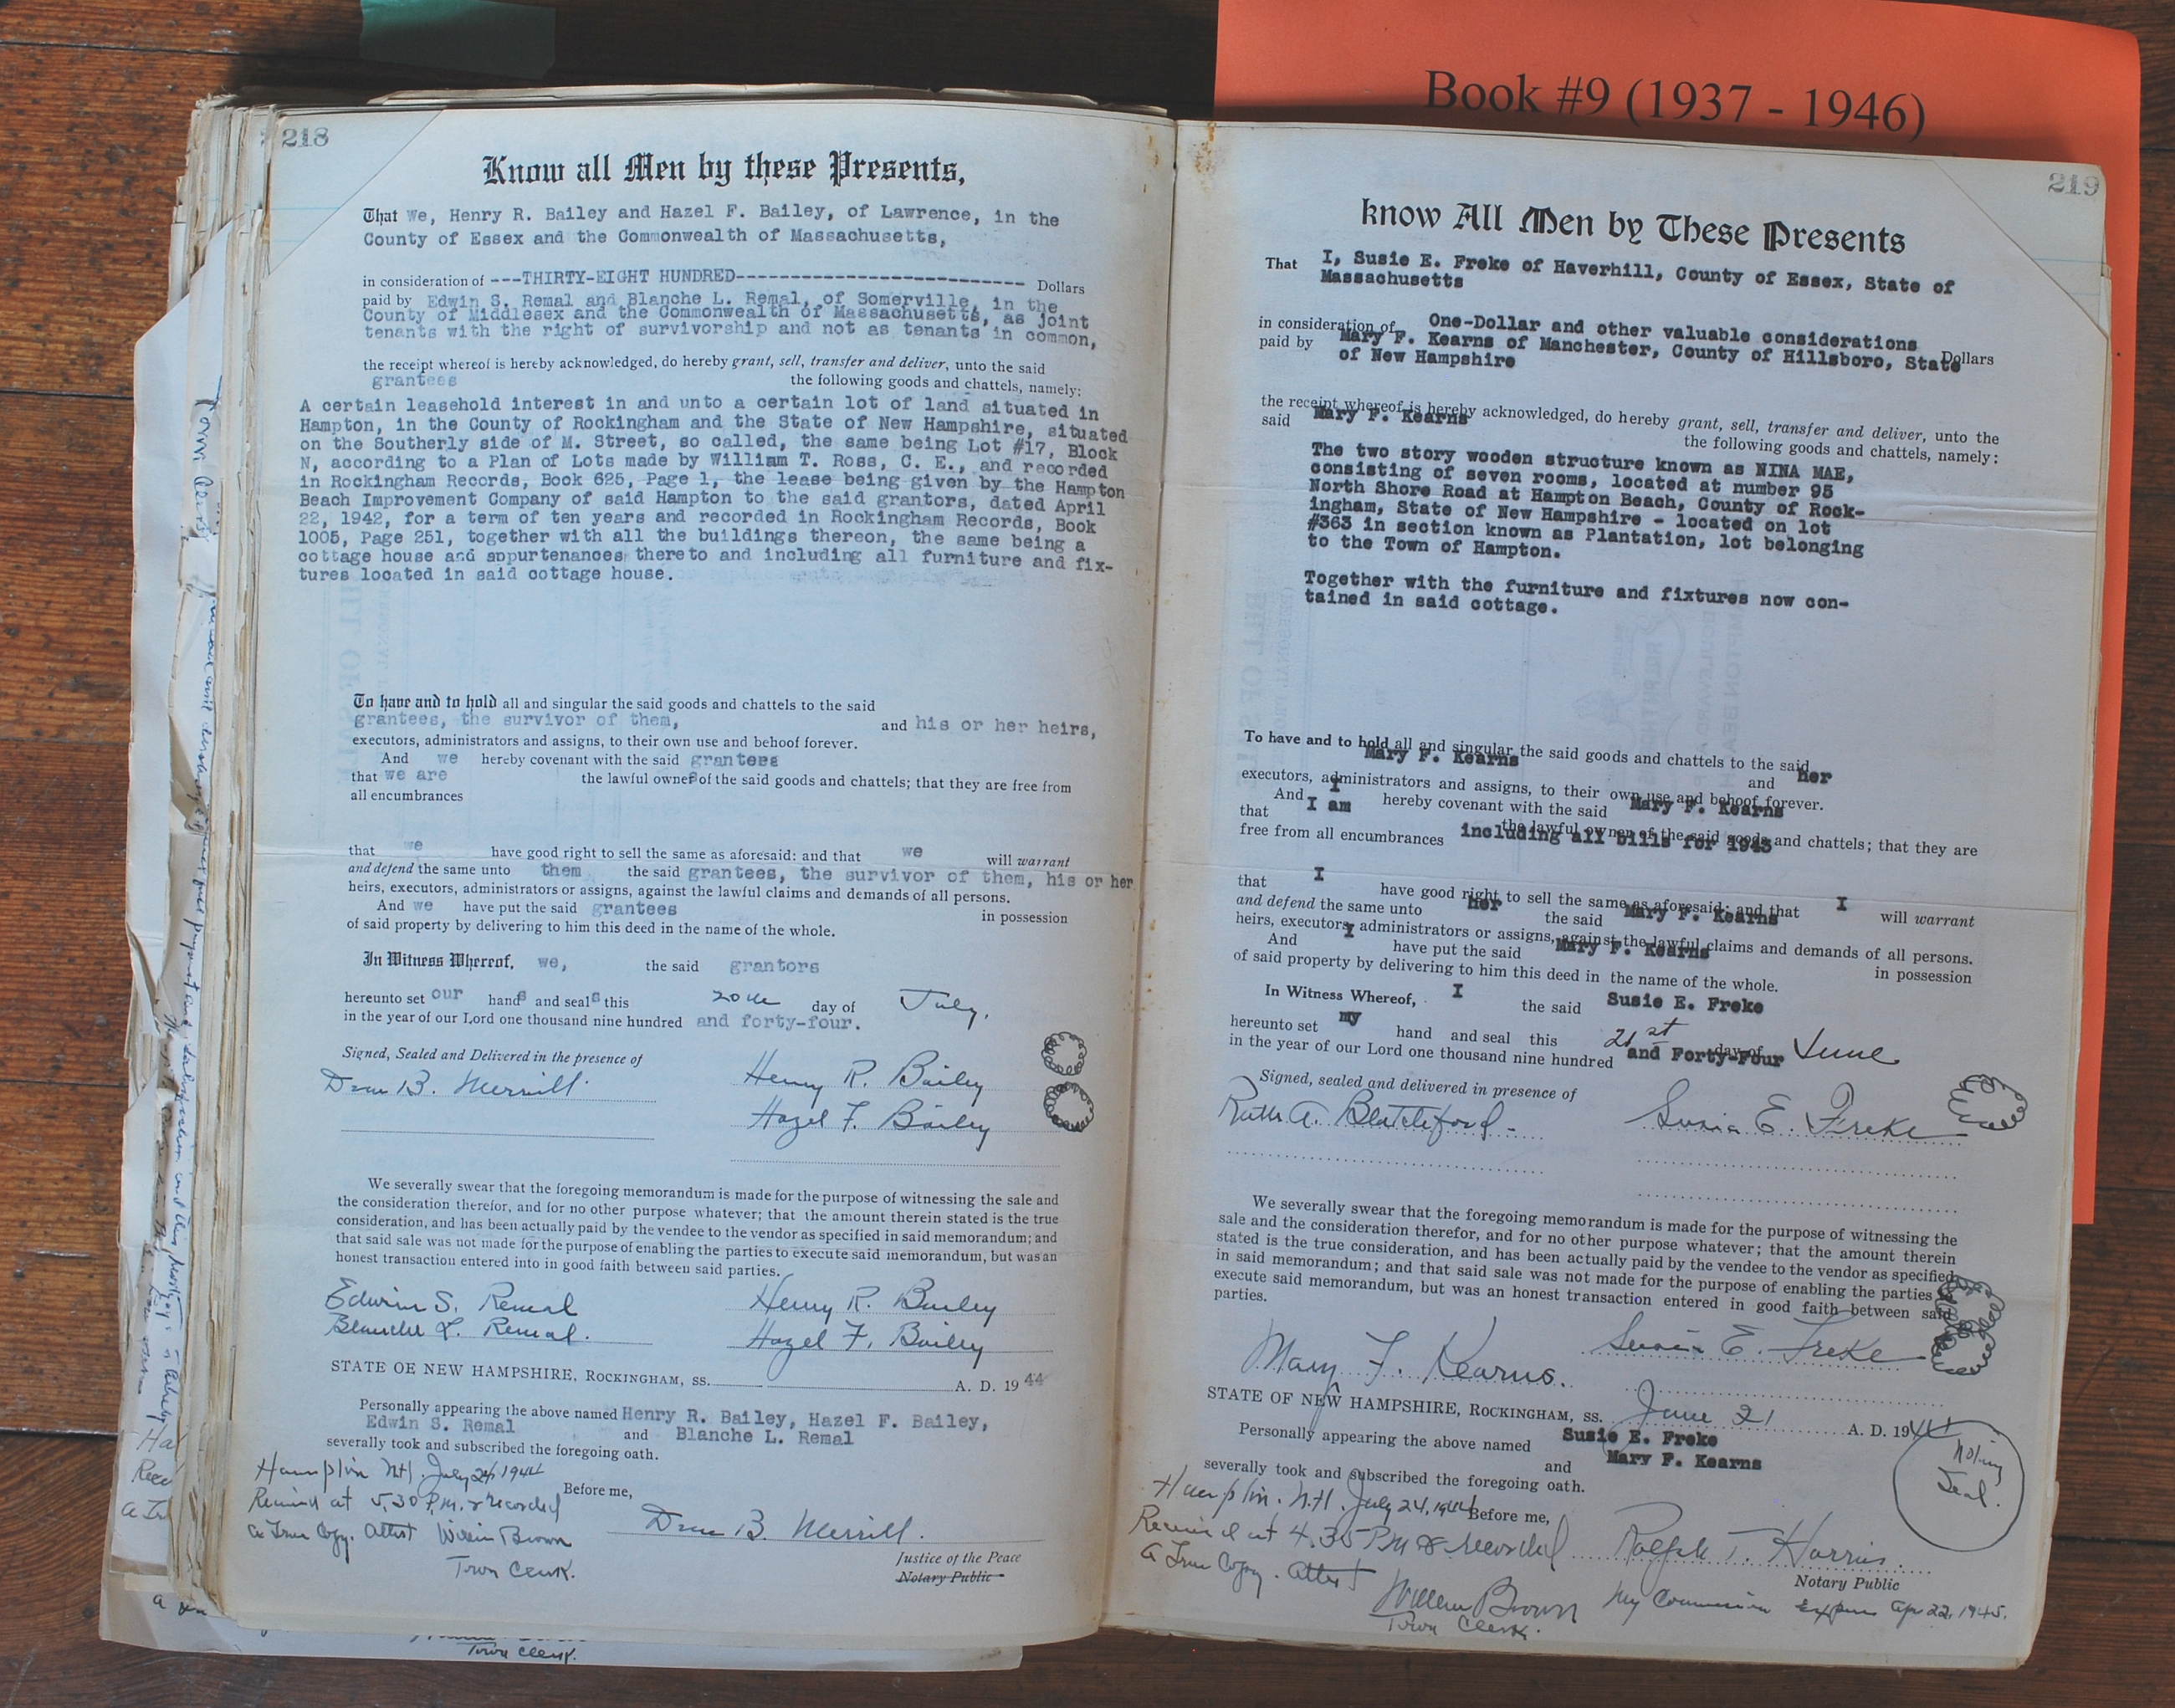 Book #9 (1937 - 1946)
218
Know all Men by these Presents,
That We, Henry R. Bailey and Hazel F. Bailey, of Lawrence, in the
County of Essex and the Commonwealth of Massachusetts,
in consideration of ---THIRTY-EIGHT HUNDRED--------------------------- Dollars
paid by Edwin S. Remal and Blanche L. Remal, of Somerville, in the
County of Middlesex and the Commonwealth of Massachusetts, as joint
tenants with the right of survivorship and not as tenants in common,
the receipt whereof is hereby acknowledged, do hereby grant, sell, transfer and deliver, unto the said
grantees the following goods and chattels, namely:
A certain leasehold interest in and unto a certain lot of land situated in
Hampton, in the County of Rockingham and the State of New Hampshire, situated
on the Southerly side of M. Street, so called, the same being Lot #17, Block
N, according to a Plan of Lots made by William T. Ross, C. E., and recorded
in Rockingham Records, Book 625, Page 1, the lease being given by the Hampton
Beach Improvement Company of said Hampton to the said grantors, dated April
22, 1942, for a term of ten years and recorded in Rockingham Records, Book
1005, Page 251, together with all the buildings thereon, the same being a
cottage house and appurtenances thereto and including all furniture and fix-
tures located in said cottage house.
To have and to hold all and singular the said goods and chattels to the said
grantees, the survivor of them, and his or her heirs,
executors, administrators and assigns, to their own use and behoof forever.
And we hereby covenant with the said grantees
that we are the lawful owners of the said goods and chattels; that they are free from
all encumbrances
that we have good right to sell the same as aforesaid: and that we will warrant
and defend the same unto them the said grantees, the survivor of them, his or her
heirs, executors, administrators or assigns, against the lawful claims and demands of all persons.
And we have put the said grantees in possession
of said property by delivering to him this deed in the name of the whole.
In Witness Whereof, we, the said grantors
hereunto set our hands and seals this 20th day of July,
in the year of our Lord one thousand nine hundred and forty-four.
Signed, Sealed and Delivered in the presence of
Henry R. Bailey
B. Merrill
Hazel F. Bailey
We severally swear that the foregoing memorandum is made for the purpose of witnessing the sale and
the consideration therefor, and for no other purpose whatever; that the amount therein stated is the true
consideration, and has been actually paid by the vendee to the vendor as specified in said memorandum; and
that said sale was not made for the purpose of enabling the parties to execute said memorandum, but was an
honest transaction entered into in good faith between said parties.
Edwin S. Remal Henry R. Bailey
Blanche L. Remal. Hazel F. Bailey
STATE OF NEW HAMPSHIRE, ROCKINGHAM, SS. A. D. 1944
Personally appearing the above named Henry R. Bailey, Hazel F. Bailey,
Edwin S. Remal and Blanche L. Remal
severally took and subscribed the foregoing oath.
Hampton N.H. July 24, 1944
Before me,
Received at 5.30 P.M. & recorded
B. Merrill.
a True Copy. Attest William Brown
Town Clerk.
Justice of the Peace
Notary Public
Town Clerk.
219
Know All Men by These Presents
That I, Susie E. Freke of Haverhill, County of Essex, State of
Massachusetts
in consideration of One-Dollar and other valuable considerations Dollars
paid by Mary F. Kearns of Manchester, County of Hillsboro, State
of New Hampshire
the receipt whereof is hereby acknowledged, do hereby grant, sell, transfer and deliver, unto the
said Mary F. Kearns the following goods and chattels, namely:
The two story wooden structure known as NINA MAE,
consisting of seven rooms, located at number 95
North Shore Road at Hampton Beach, County of Rock-
ingham, State of New Hampshire - located on lot
#363 in section known as Plantation, lot belonging
to the Town of Hampton.
Together with the furniture and fixtures now con-
tained in said cottage.
To have and to hold all and singular the said goods and chattels to the said
Mary F. Kearns and her
executors, administrators and assigns, to their own use and behoof forever.
And I hereby covenant with the said Mary F. Kearns
that I am the lawful owner of the said goods and chattels; that they are
free from all encumbrances including all bills for 1943
that I have good right to sell the same as aforesaid; and that I will warrant
and defend the same unto her the said Mary F. Kearns
heirs, executors, administrators or assigns, against the lawful claims and demands of all persons.
And I have put the said Mary F. Kearns in possession
of said property by delivering to him this deed in the name of the whole.
In Witness Whereof, I the said Susie E. Freke
hereunto set my hand and seal this 21st day of June
in the year of our Lord one thousand nine hundred and Forty-Four
Signed, sealed and delivered in presence of
Ruth A. Blatchford Susie E. Freke
We severally swear that the foregoing memorandum is made for the purpose of witnessing the
sale and the consideration therefor, and for no other purpose whatever; that the amount therein
stated is the true consideration, and has been actually paid by the vendee to the vendor as specified
in said memorandum; and that said sale was not made for the purpose of enabling the parties to
execute said memorandum, but was an honest transaction entered in good faith between said
parties.
Mary F. Kearns. Susie E. Freke
STATE OF NEW HAMPSHIRE, ROCKINGHAM, SS. June 21 A. D. 1944
Personally appearing the above named Susie E. Freke
and Mary F. Kearns
severally took and subscribed the foregoing oath.
Notary
Seal.
Hampton. N.H. July 24, 1944 Before me,
Received at 4.35 PM & recorded Ralph T. Harris.
a True Copy. Attest
Notary Public
William Brown My Commission Expires Apr 22, 1945.
Town Clerk.